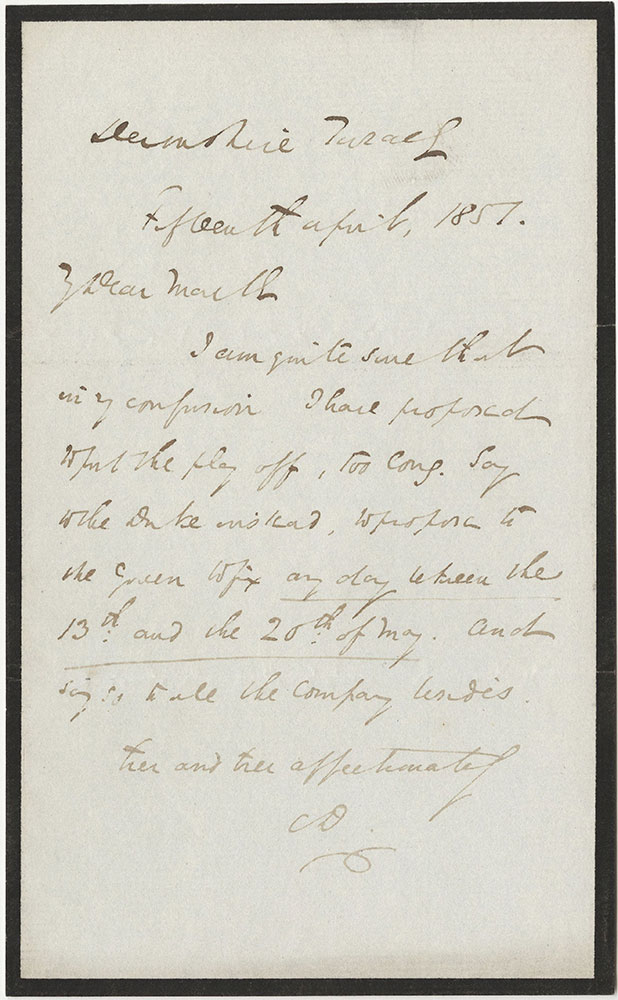 Devonshire Terrace
Fifteenth April, 1851.
My Dear Mark
I am quite sure that
in my confusion I have proposed
to put the play off, too long. Say
to the Duke instead, to propose to
the Queen to fix any day between the
13th. and the 20th. of May. And
say so to all the company besides.
Ever and ever affectionately
CD.